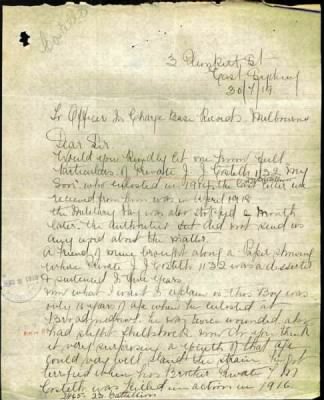 3 Plunkett St
East Sydney
30/7/19
To Officer In Charge Base Records Melbourne
Dear Sir
Would you kindly let me know full
particulars of Private J. J. Costello 1132 My
Son who enlisted in 1914. the last letter we
received from him was in April 1918
the Military Pay was also stopped a Month
later. the Authorities did not send us
any word about the matter.
A friend of mine brought along a Paper showing
where Private J J Costello 1132 was a deserter
& sentenced to five years
now what I want to explain is this Boy was
only 16 years of age when he enlisted at
he was twice wounded also
had shell shock. now do you think
it very surprising a youth of that age
could very well stand the strain. he got
terrified when his Brother Private
Costello was killed in action in 1916
Battalion